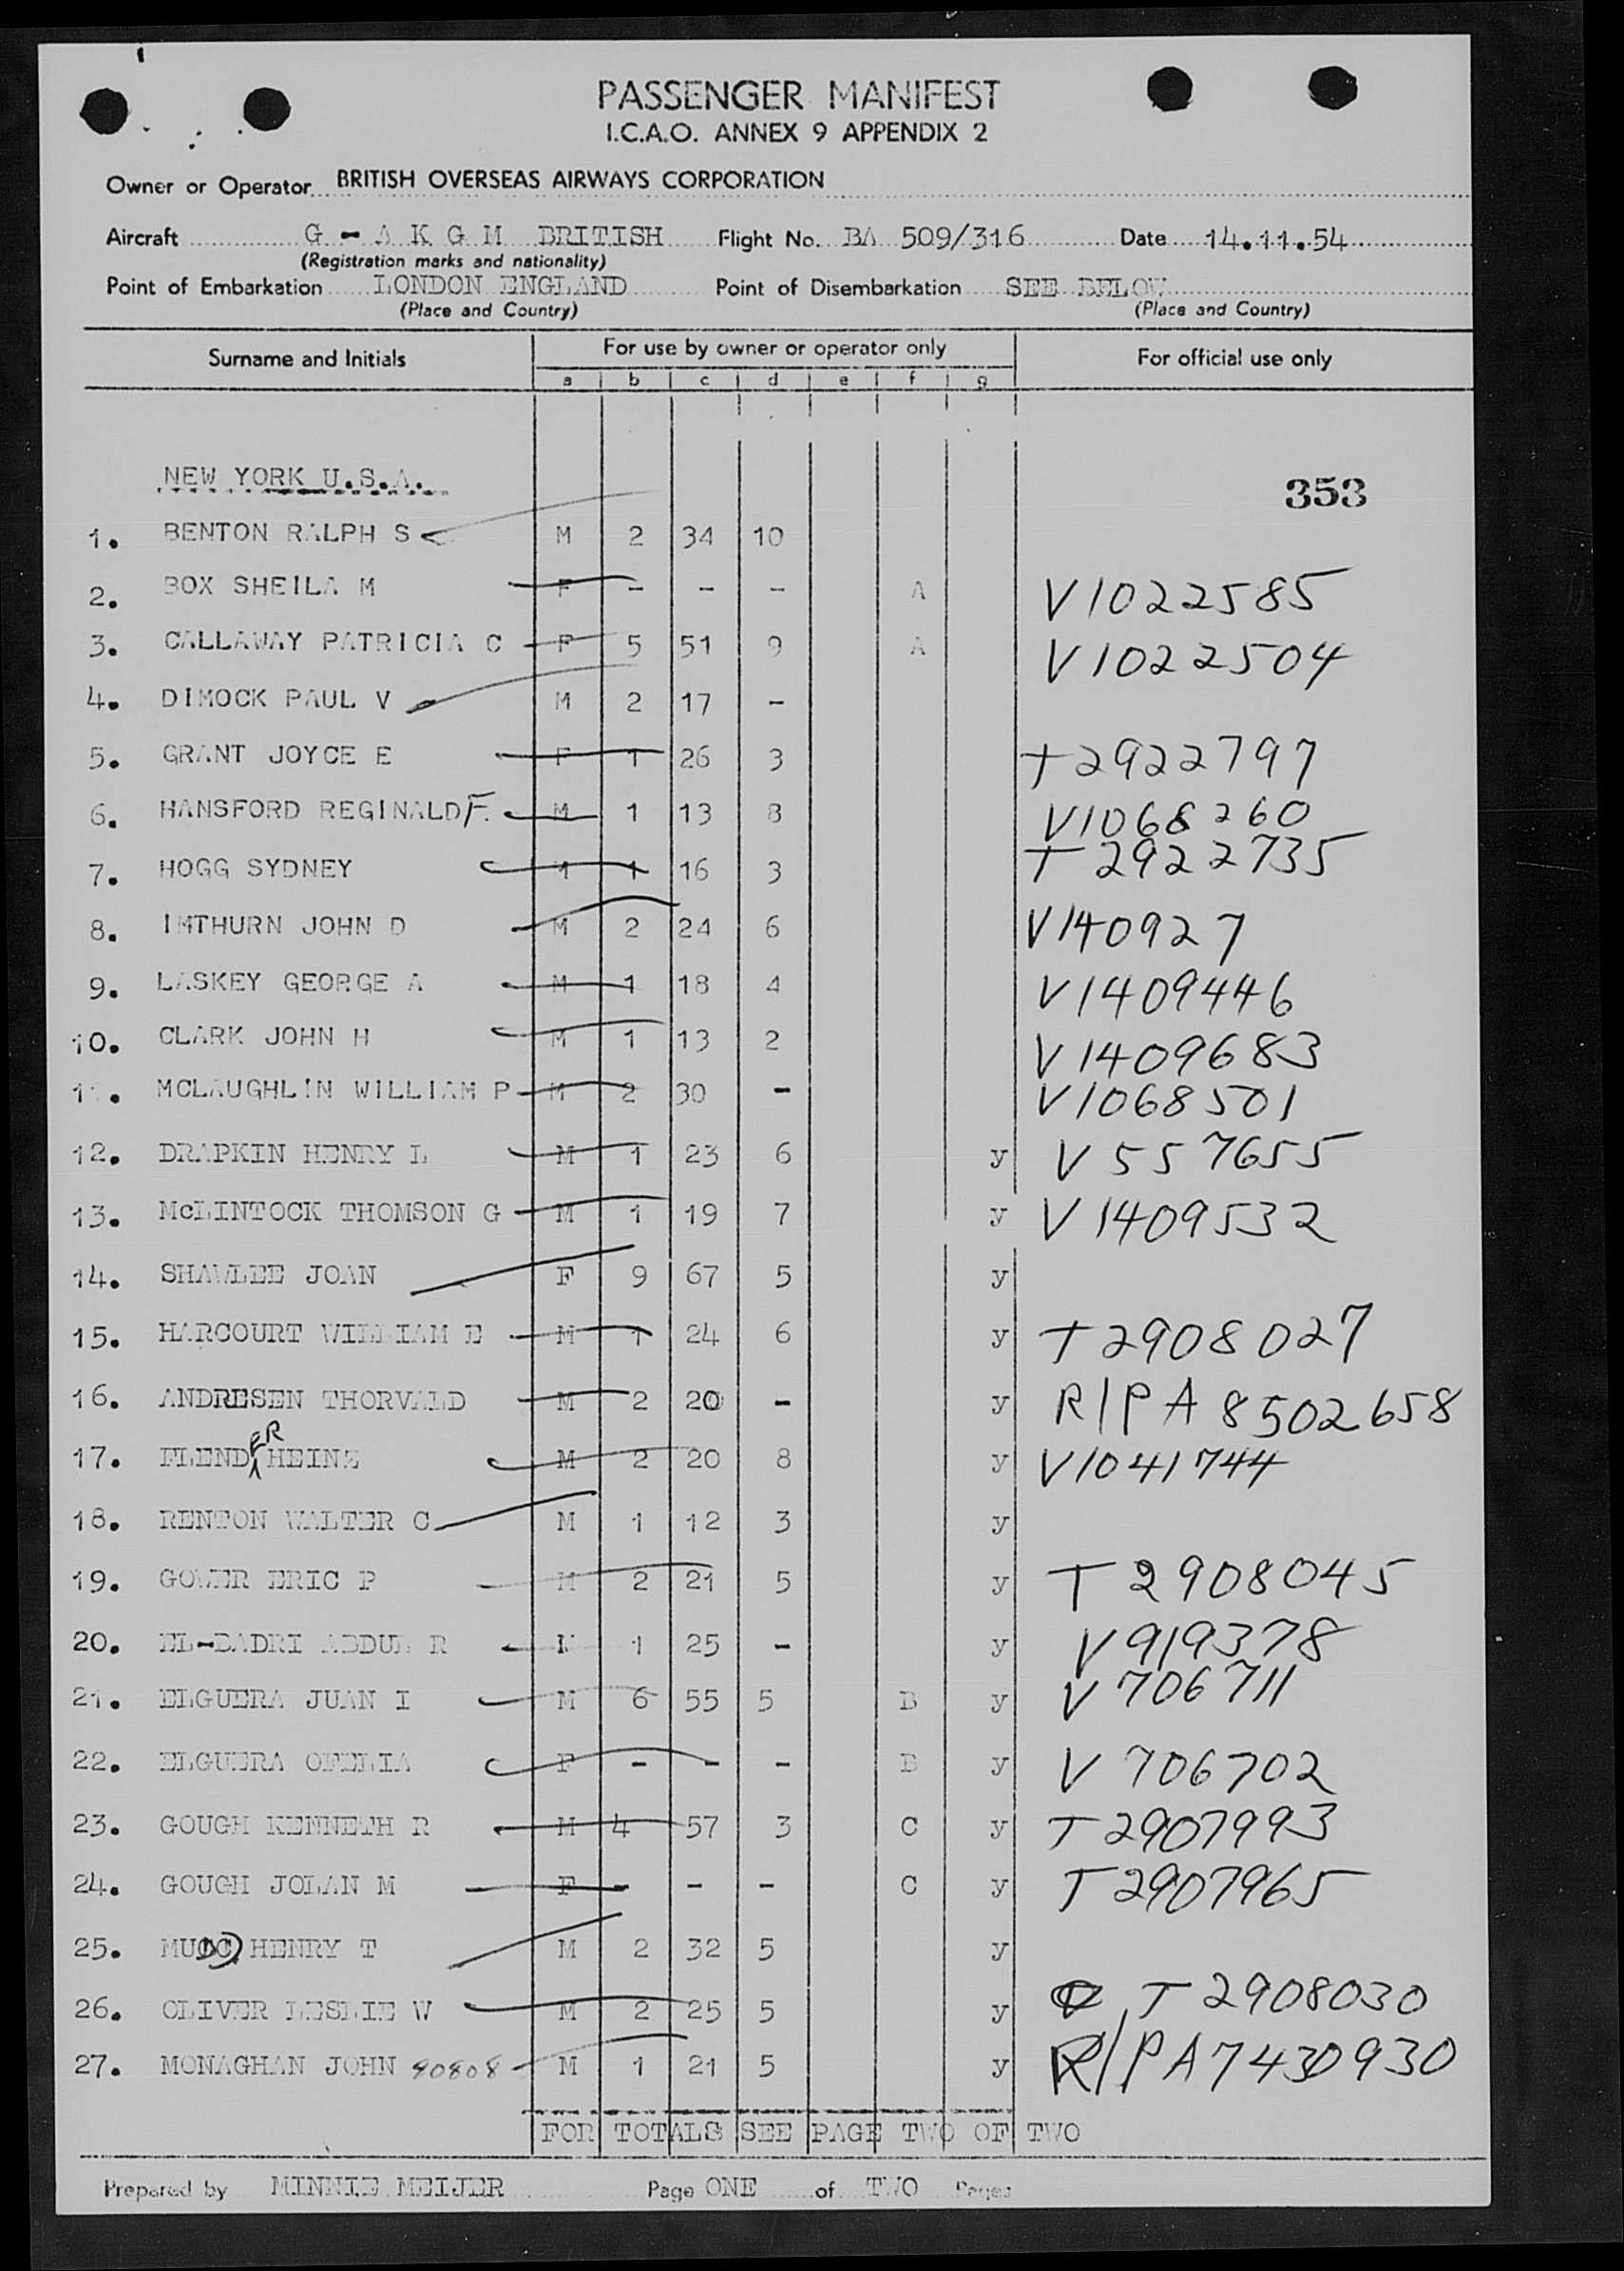 PASSENGER MANIFEST
I.C.A.O. ANNEX 9 APPENDIX 2
Owner or Operator BRITISH OVERSEAS AIRWAYS CORPORATION
Aircraft G - A K G M BRITISH Flight No. BA 509/316 Date 14.11.54
(Registration marks and nationality)
Point of Embarkation LONDON ENGLAND Point of Disembarkation SEE BELOW
(Place and Country) (Place and Country)
Surname and Initials For use by owner or operator only For official use only
a b c d e f g
NEW YORK U.S.A. 353
1. BENTON RALPH S M 2 34 10
2. BOX SHEILA M F - - - A V1022585
3. CALLAWAY PATRICIA C F 5 51 9 A V1022504
4. DIMOCK PAUL V M 2 17 -
5. GRANT JOYCE E F 1 26 3 T2922797
6. HANSFORD REGINALD F. M 1 13 8 V1068260
7. HOGG SYDNEY M 1 16 3 T2922735
8. IMTHURN JOHN D M 2 24 6 V140927
9. LASKEY GEORGE A M 1 18 4 V1409446
10. CLARK JOHN H M 1 13 2 V1409683
11. MCLAUGHLIN WILLIAM P M 2 30 - V1068501
12. DRAPKIN HENRY L M 1 23 6 y V557655
13. McLINTOCK THOMSON G M 1 19 7 y V1409532
14. SHAWLEE JOAN F 9 67 5 y
15. HARCOURT WILLIAM E M 1 24 6 y T2908027
16. ANDRESEN THORVALD M 2 20 - y R/P A8502658
17. FLENDER HEINZ M 2 20 8 y V1041744
18. RENTON WALTER C M 1 12 3 y
19. GOWER ERIC P M 2 21 5 y T2908045
20. EL-BADRI ABDUL R M 1 25 - y V919378
21. ELGUERA JUAN I M 6 55 5 B y V706711
22. ELGUERA OFELIA F - - - B y V706702
23. GOUGH KENNETH R M 4 57 3 C y T2907993
24. GOUGH JOLAN M F - - - C y T2907965
25. HENRY T M 2 32 5 y
26. OLIVER LESLIE W M 2 25 5 y T2908030
27. MONAGHAN JOHN 90808 M 1 21 5 y R/P A7430930
FOR TOTALS SEE PAGE TWO OF TWO
Prepared by MINNIE MEIJER Page ONE of TWO Pages